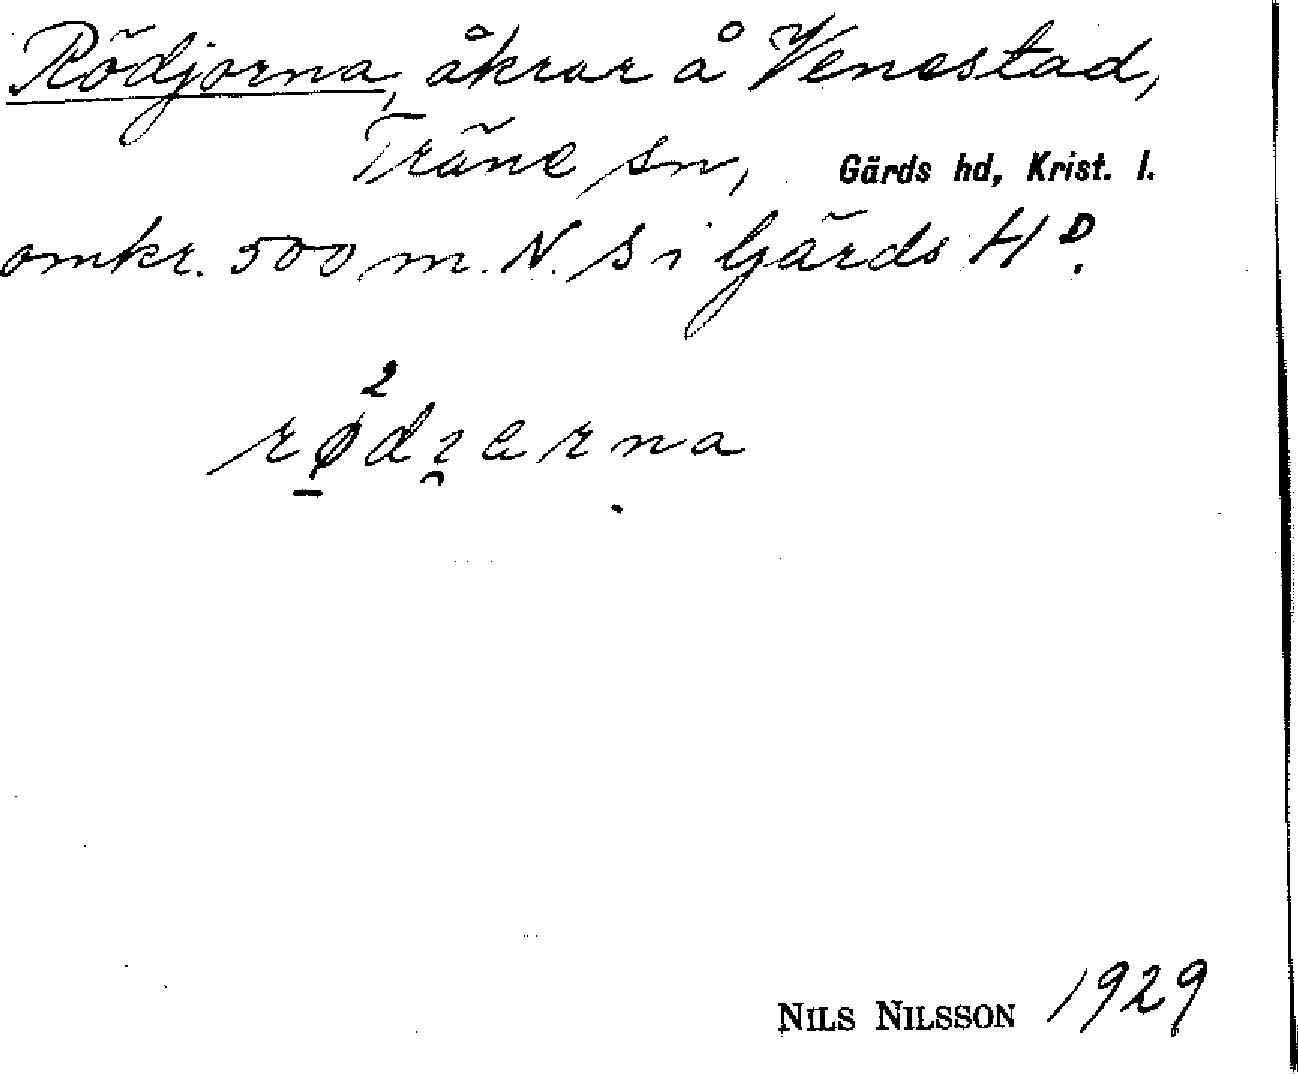 Rödjorna, åkrar å Venestad,
Träne sn, Gärds hd, Krist. l.
omkr. 500 m. N. S i Gärds HD.
2
rødıerna
NILS NILSSON 1929